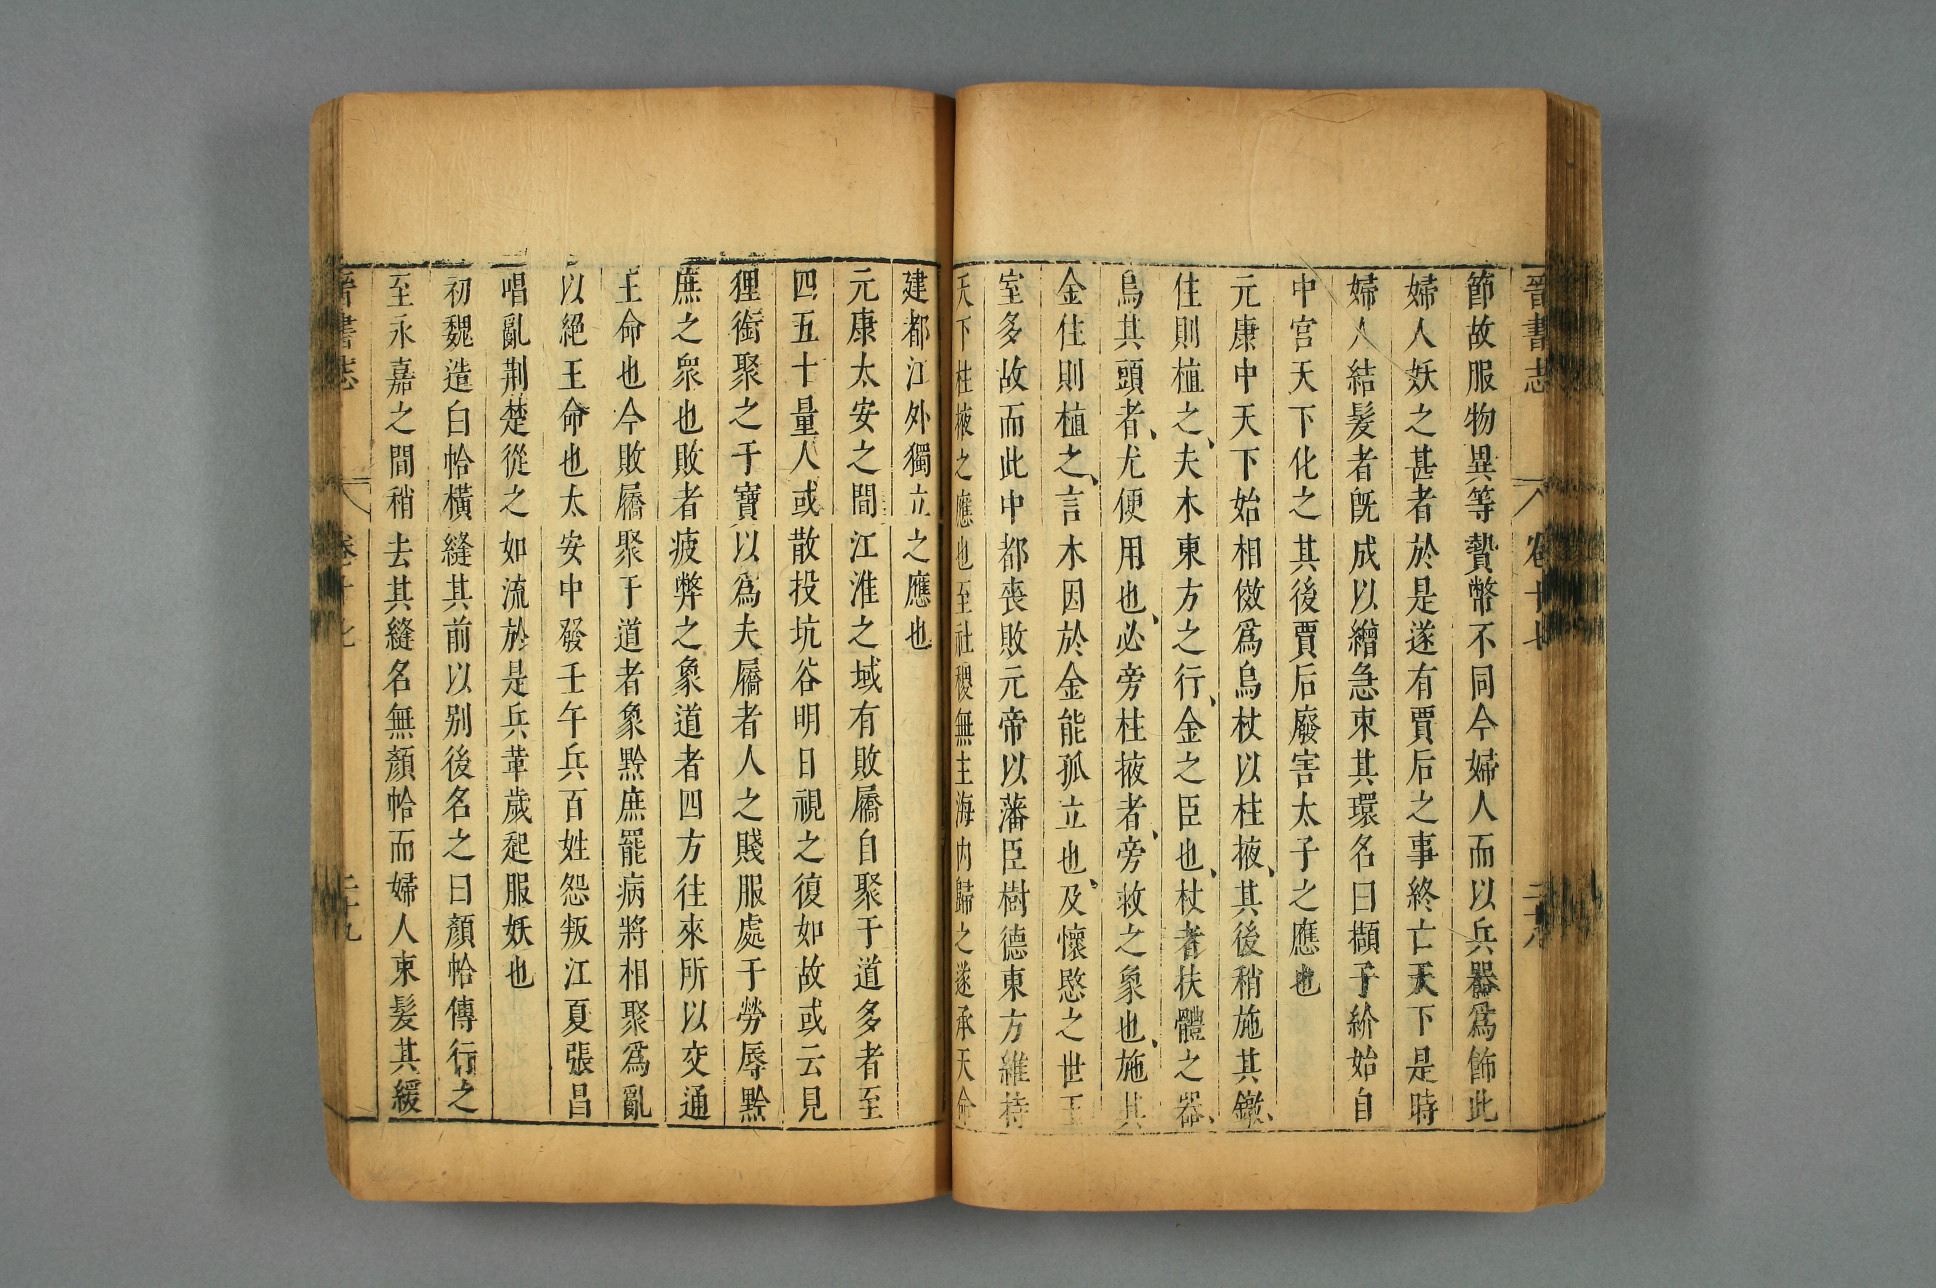 晉書志 卷十七 二十八
節故服物異等贄幣不同今婦人而以兵器爲飾此
婦人妖之甚者於是遂有賈后之事終亡天下是時
婦人結髮者旣成以繒急束其環名曰擷子紒始自
中宮天下化之其後賈后廢害太子之應也
元康中天下始相傚爲烏杖以柱掖其後稍施其鐓
住則植之夫木東方之行金之臣也杖者扶體之器
烏其頭者尤便用也必旁柱掖者旁救之象也施其
金住則植之言木因於金能孤立也及懷愍之世王
室多故而此中都喪敗元帝以藩臣樹德東方維持
天下柱掖之應也至社稷無主海內歸之遂承天命
建都江外獨立之應也
元康太安之間江淮之域有敗屩自聚于道多者至
四五十量人或散投坑谷明日視之復如故或云見
狸銜聚之干寶以爲夫屩者人之賤服處于勞辱黔
庶之衆也敗者疲弊之象道者四方往來所以交通
王命也今敗屩聚于道者象黔庶罷病將相聚爲亂
以絕王命也太安中發壬午兵百姓怨叛江夏張昌
唱亂荆楚從之如流於是兵革歲起服妖也
初魏造白帢橫縫其前以别後名之曰顏帢傳行之
至永嘉之間稍去其縫名無顏帢而婦人束髮其緩
晉書志 卷十七 二十九